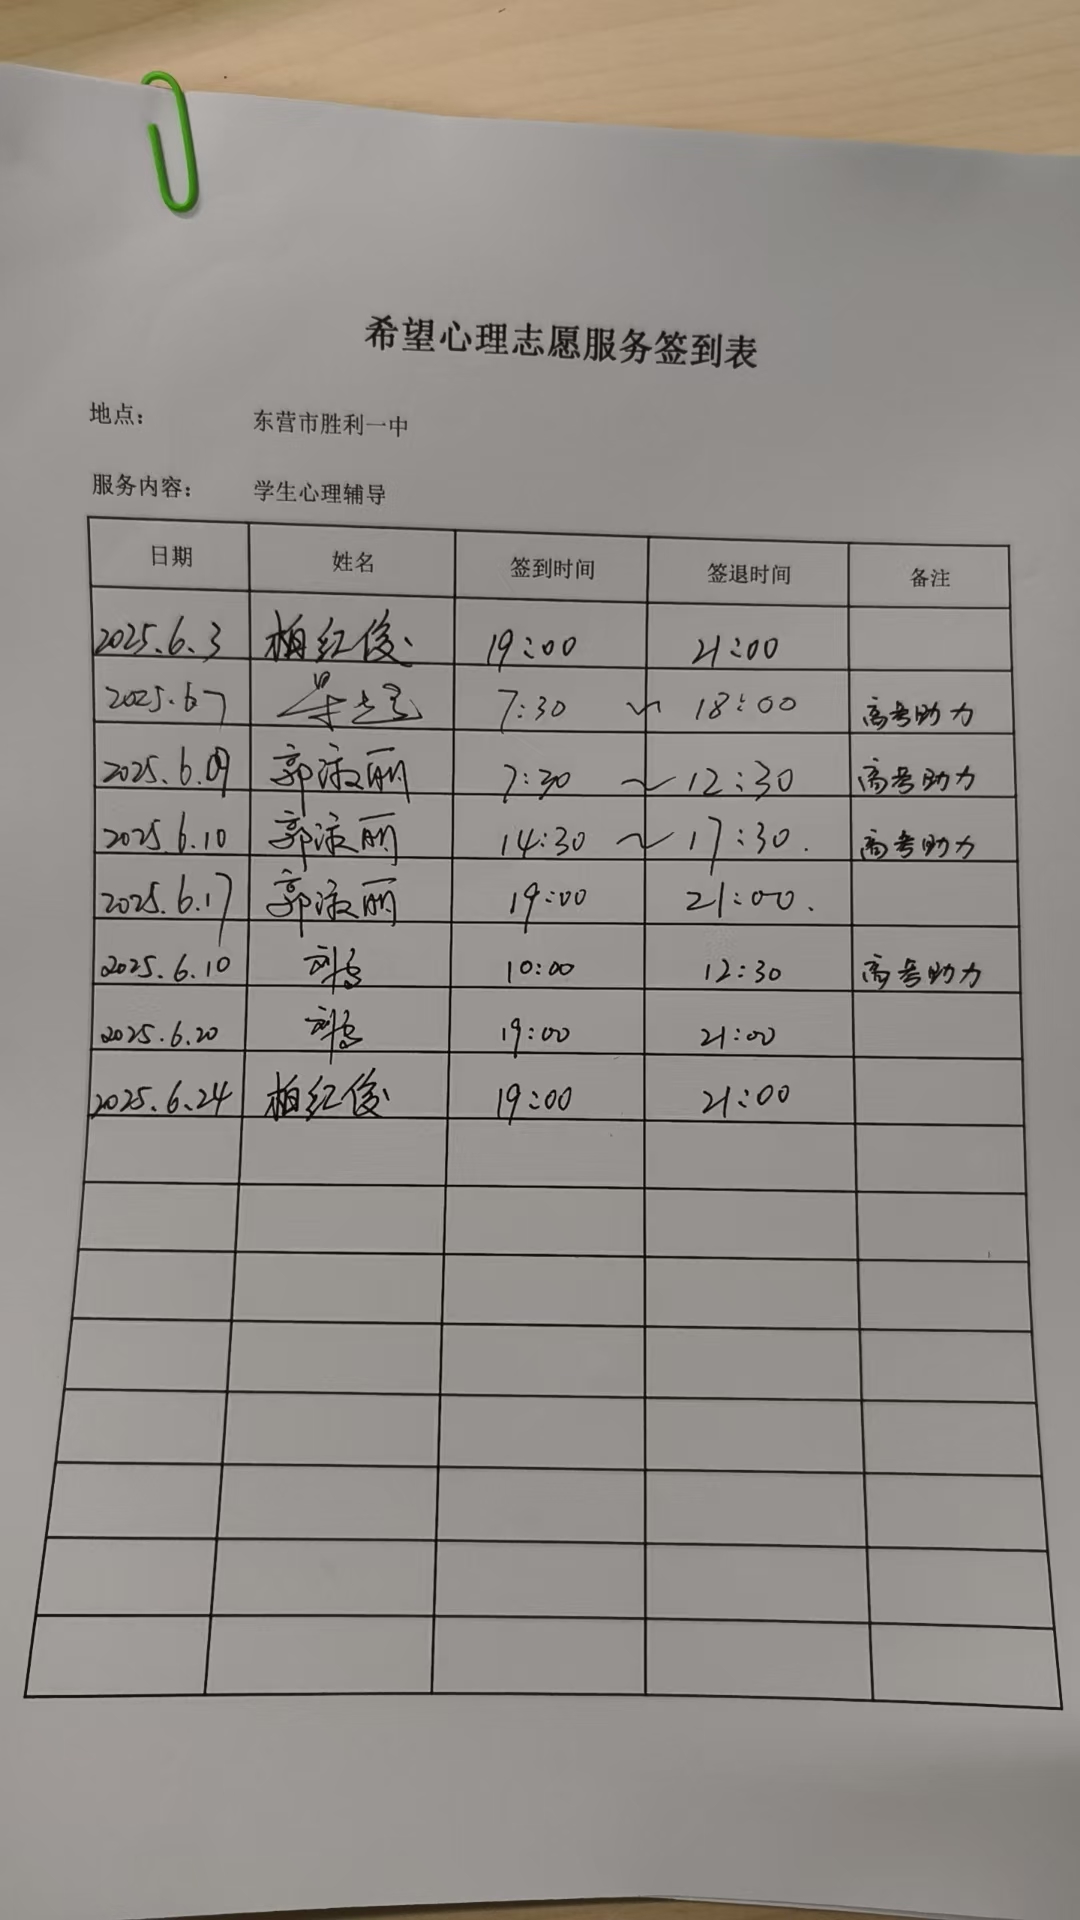 希望心理志愿服务签到表
地点： 东营市胜利一中
服务内容： 学生心理辅导
日期 姓名 签到时间 签退时间 备注
2025.6.3 柏红俊 19:00 21:00
2025.6.7 7:30 ~ 18:00 高考助力
2025.6.09 郭淑丽 7:30 ~ 12:30 高考助力
2025.6.10 郭淑丽 14:30 ~ 17:30. 高考助力
2025.6.17 郭淑丽 19:00 21:00.
2025.6.10 10:00 12:30 高考助力
2025.6.20 19:00 21:00
2025.6.24 柏红俊 19:00 21:00